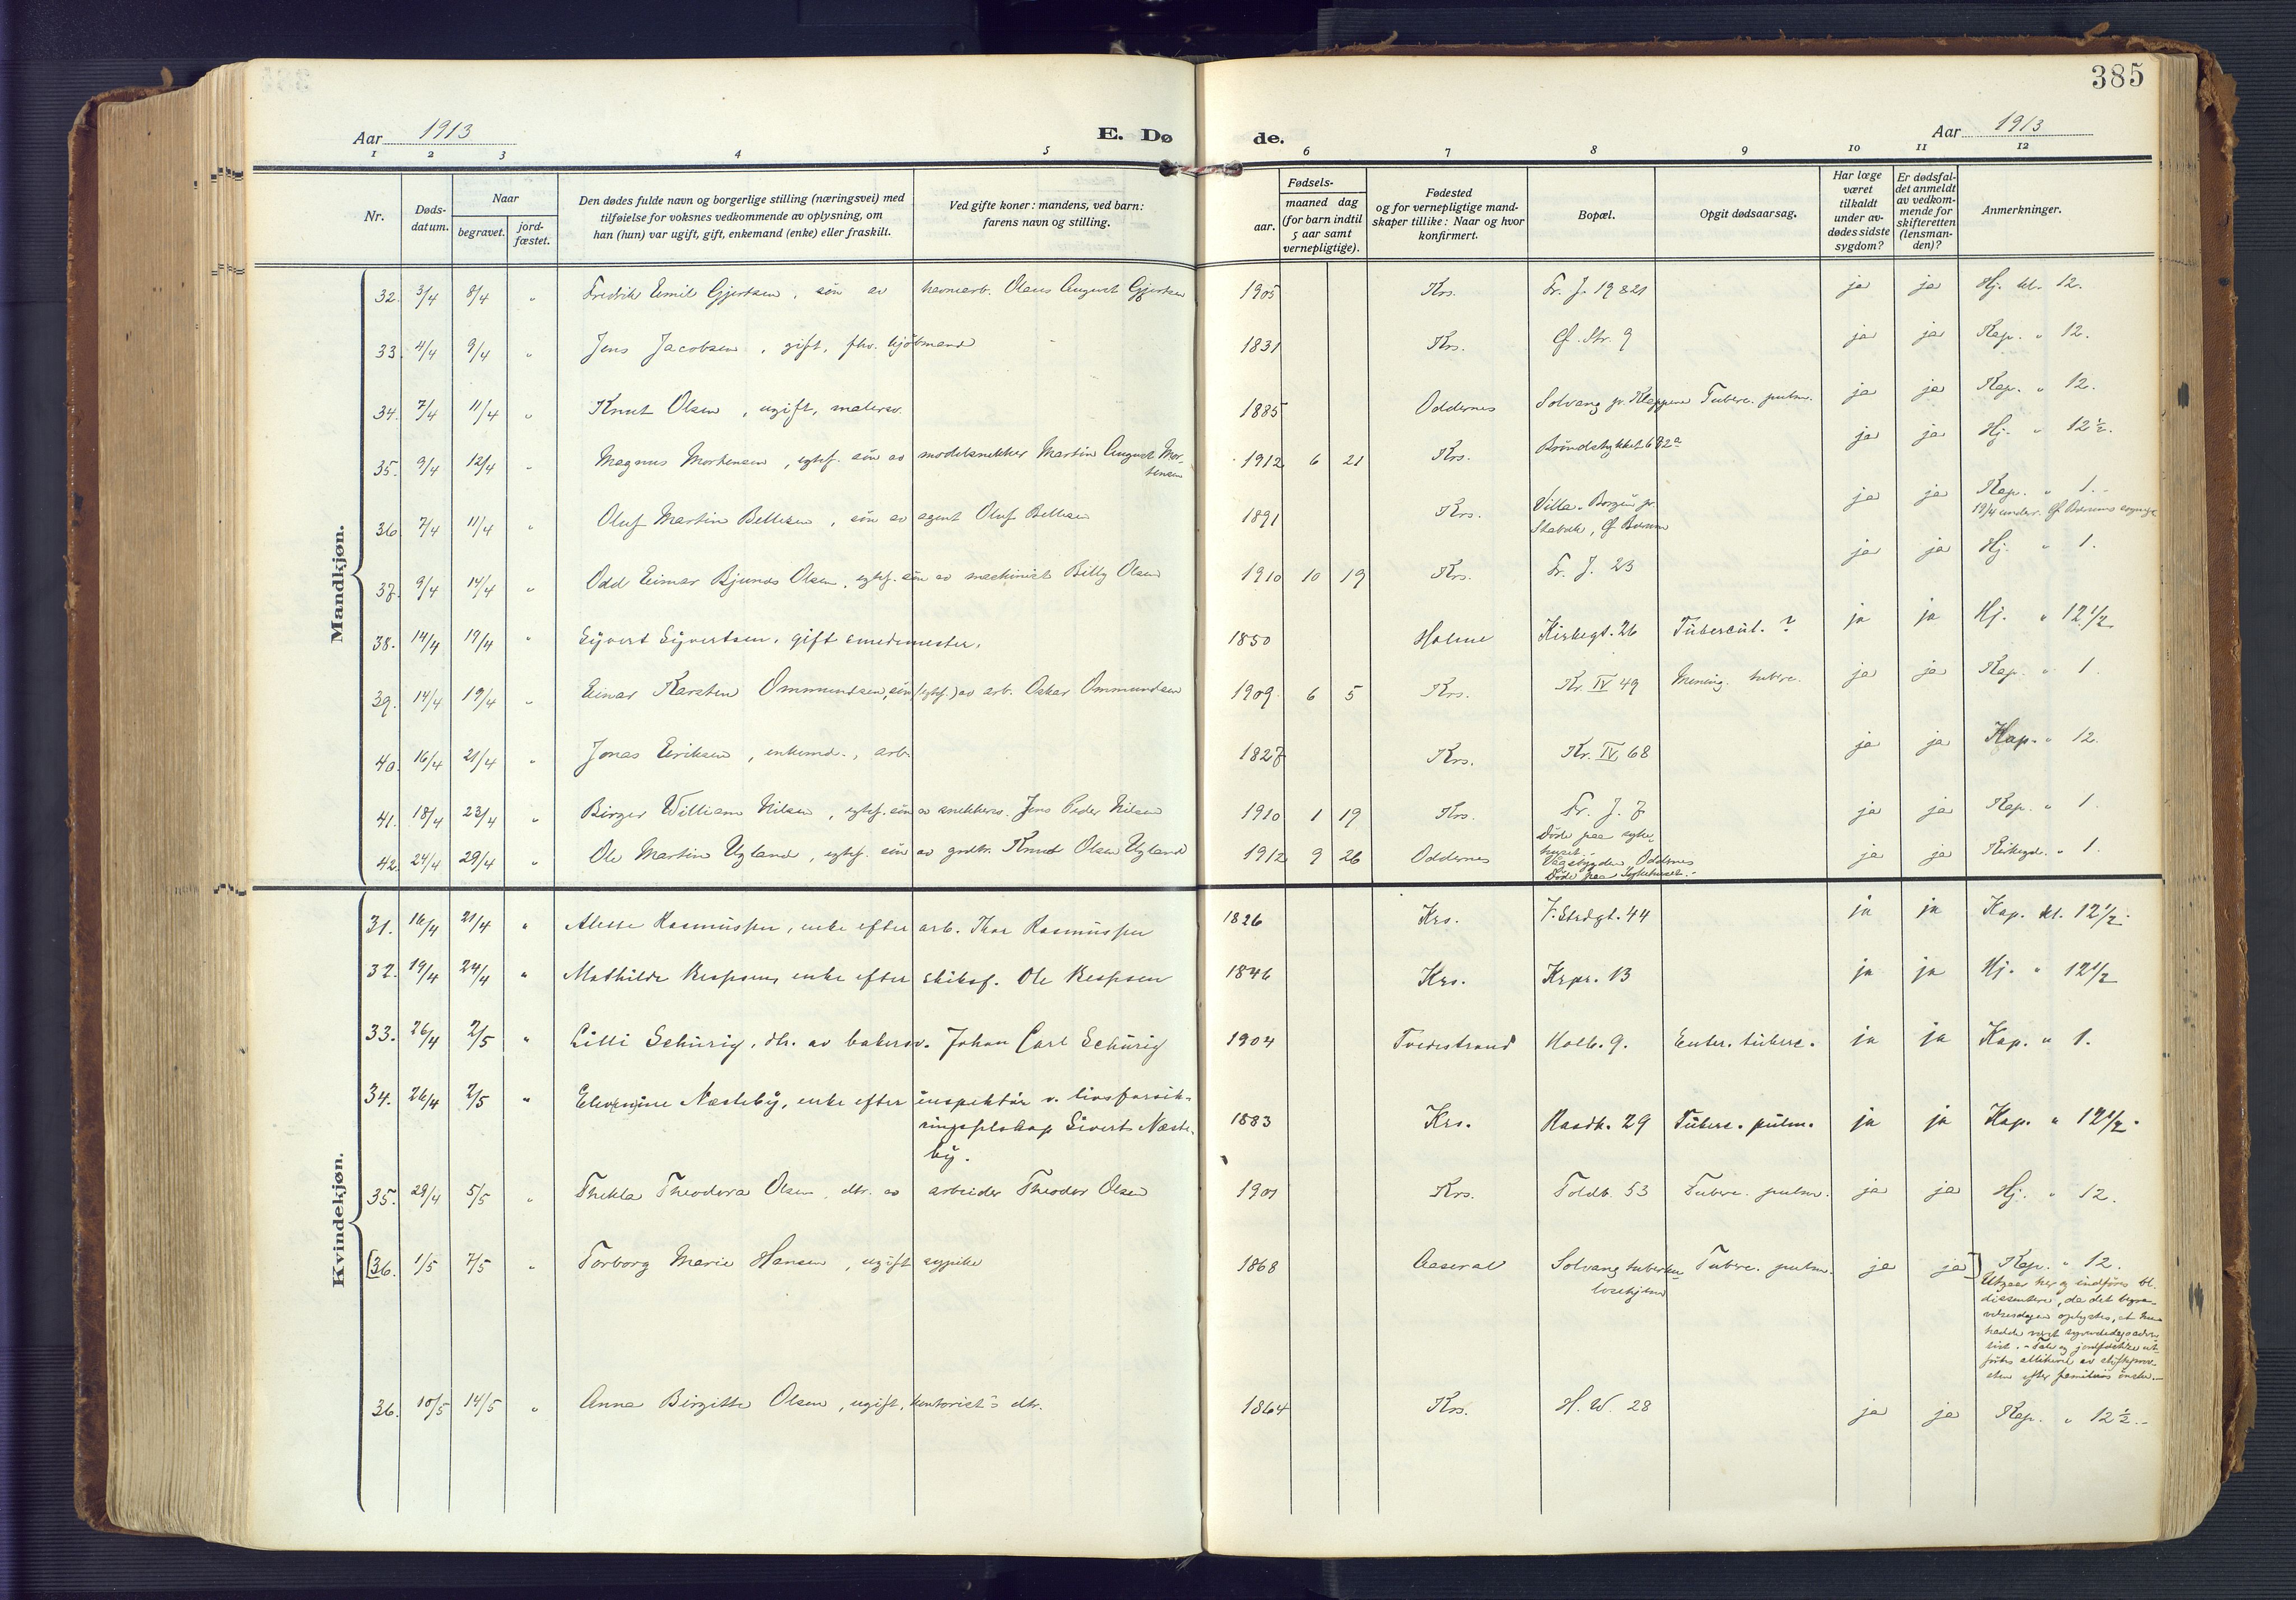 385
Aar 1913
E. Dø
de.
Aar 1913
1 2 3 4 5 6 7 8 9 10 11 12
Nr.
Døds-
datum.
Naar
begravet.
jord-
fæstet.
Den dødes fulde navn og borgerlige stilling (næringsvei) med
tilføielse for voksnes vedkommende av oplysning, om
han (hun) var ugift, gift, enkemand (enke) eller fraskilt.
Ved gifte koner: mandens, ved barn:
farens navn og stilling.
Fødsels-
aar.
maaned dag
(for barn indtil
5 aar samt
vernepligtige).
Fødested
og for vernepligtige mand-
skaper tillike: Naar og hvor
konfirmert.
Bopæl.
Opgit dødsaarsag.
Har læge
været
tilkaldt
under av-
dødes sidste
sygdom?
Er dødsfal-
det anmeldt
av vedkom-
mende for
skifteretten
(lensman-
den)?
Anmerkninger.
Mandkjøn.
32. 3/4 8/4 " Fredrik Emil Gjertsen, søn av havnearb. Olaus August Gjertsen 1905 Krs. Fr. J. 19 821 ja ja Hj. kl. 12.
33. 4/4 9/4 " Jens Jacobsen, gift, fhv. kjøbmand 1831 Krs. Ø. Str. 9 ja ja Kap. " 12.
34. 7/4 11/4 " Knut Olsen, ugift, malersv. 1885 Oddernes Solvang pr. Kleppene Tuberc. pulm. ja ja Kap. " 12.
35. 9/4 12/4 " Magnus Mortensen, egtef. søn av modelsnekker Martin August Mor-
tensen 1912 6 21 Krs. Brøndstykket 682a ja ja Hj. " 12 1/2.
36. 7/4 11/4 " Oluf Martin Bellesen, søn av agent Oluf Bellesen 1891 Krs. Villa Borgen pr.
Stabæk, Ø. Bærum ja ja Kap. " 1.
37. 9/4 14/4 " Odd Einar Bjunes Olsen, egtef. søn av maskinist Billy Olsen 1910 10 19 Krs. Fr. J. 23 ja ja Hj. " 1.
38. 14/4 19/4 " Syvert Syvertsen, gift smedmester. 1850 Holme Kirkegt. 26 Tubercul. ? ja ja Hj. " 12 1/2
39. 14/4 19/4 " Einar Karsten Ommundsen, søn (egtef.) av arb. Oskar Ommundsen 1909 6 5 Krs. Kr. IV 49 Mening. tuberc. ja ja Kap. " 1.
40. 16/4 21/4 " Jonas Eriksen, enkemd., arb. 1827 Krs. Kr. IV 68 ja ja Kap. " 12.
41. 18/4 23/4 " Birger William Nilsen, egtef. søn av snekkersv. Jens Peder Nilsen 1910 1 19 Krs. Fr. J. 7
Døde paa syke-
huset. ja ja Kap. " 1.
42. 24/4 29/4 " Ole Martin Ugland, egtef. søn av grdbr. Knut Olsen Ugland 1912 9 26 Oddernes Vågsbygden, Oddernes
Døde paa Sykehuset. ja ja Kirkegd. " 1.
Kvindekjøn.
31. 16/4 21/4 " Alette Rasmussen, enke efter arb. Thor Rasmussen 1826 Krs. V. Strdgt. 44 ja ja Kap. kl. 12 1/2.
32. 19/4 24/4 " Mathilde Jespsen, enke efter skibsf. Ole Jespsen 1846 Krs. Krpr. 13 ja ja Hj. " 12 1/2
33. 26/4 2/5 " Lilli Schürig, dtr. av bakersv. Johan Carl Schürig 1904 Tvedestrand Holb. 9. Enter. tuberc. ja ja Kap. " 1.
34. 26/4 2/5 " Næsteby, enke efter inspektør v. livsforsik-
ringsselskap Sivert Næste-
by. 1883 Krs. Raadh. 29 Tuberc. pulm. ja ja Kap. " 12 1/2.
35. 29/4 5/5 " Thekla Theodora Olsen, dtr. av arbeider Theodor Olsen 1901 Krs. Toldb. 53 Tuberc. pulm. ja ja Hj. " 12.
[36. 1/5 7/5 " Torborg Marie Hansen, ugift sypike 1868 Aaseral Solvang tuberku-
losehjem Tuberc. pulm. ja ja] Kap. " 12.
Utgaar her og indføres bl.
dissentere, da det begra-
velsesdagen oplystes, at hun
hadde været syvendedagsadven-
tist. - Tale og jordfæstelse ut-
førtes allikevel av stiftsprov-
sten efter familiens ønske. -
36. 10/5 14/5 " Anna Birgitte Olsen, ugift, kontorist's dtr. 1864 Krs. H. W. 28 ja ja Kap. " 12 1/2. -